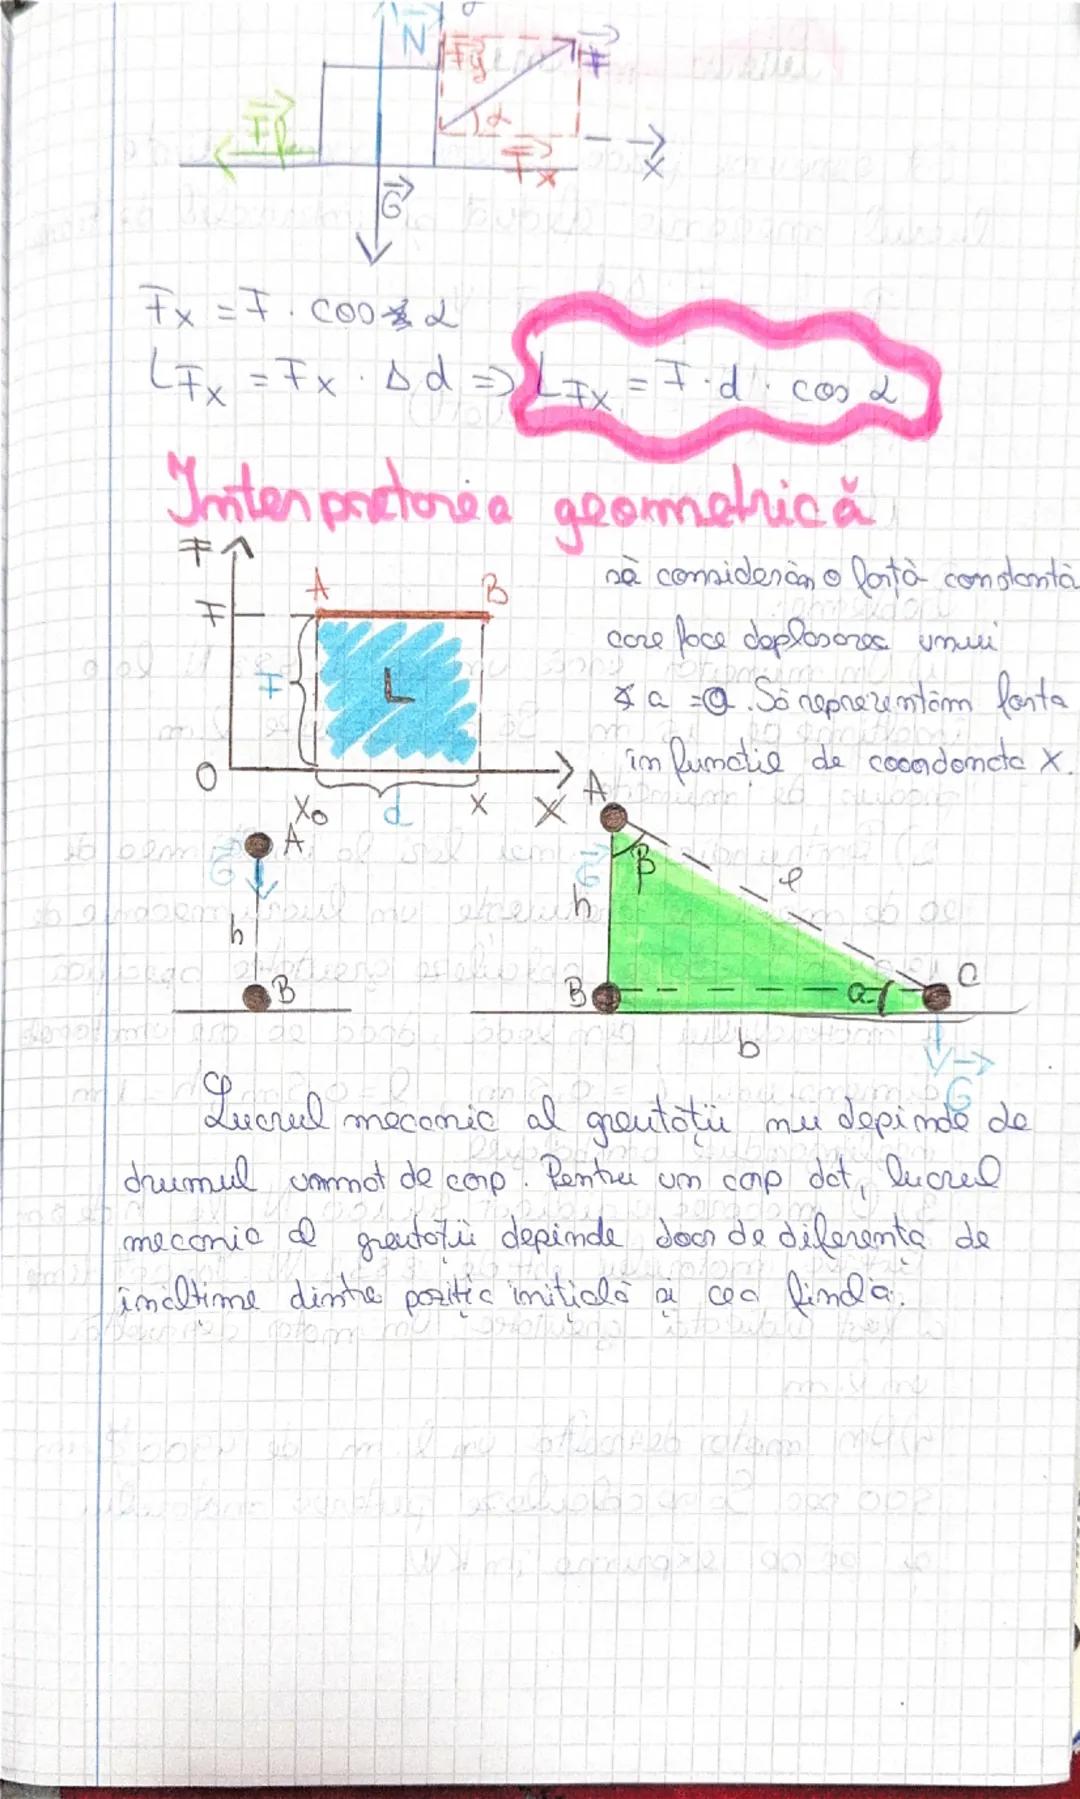 N
y
Fy
F
α
Ff
Fx
X
G
Fx = F · cos α
LFx = Fx · Δd => LFx = F · d · cos α
Interpretarea geometrică
F
A
B
F
F
L
O
X0
d
x
X
să considerăm o forță constantă
care face deplasarea unui
a = 0. Să reprezentăm forta
în funcție de coordonata X.
A
G
h
B
A
β
G
h
l
B
α
C
b
G
Lucrul mecanic al greutății nu depinde de
drumul urmat de corp. Pentru un corp dat, lucrul
mecanic al greutății depinde doar de diferența de
înălțime dintre poziția inițială și cea finală.